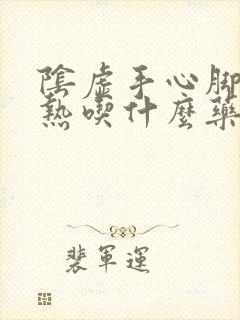 陰虛手心腳
熱喫什麼藥
裴軍運